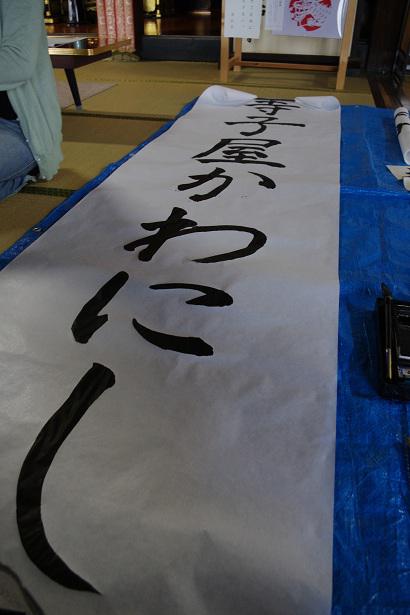 寺子屋かわにし